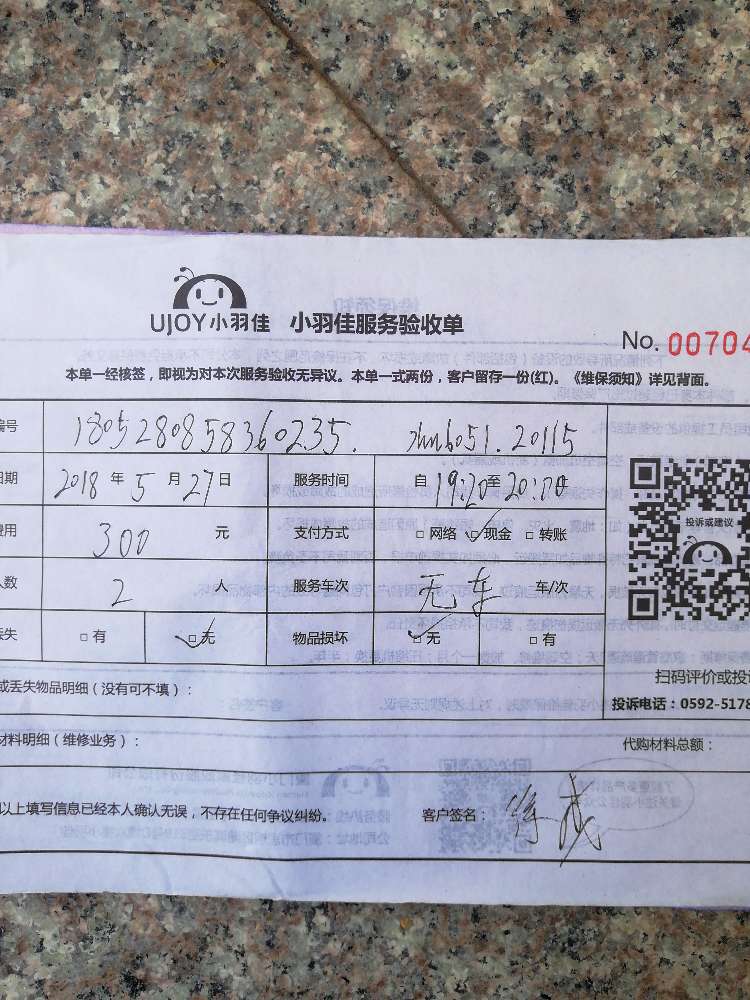 UJOY小羽佳 小羽佳服务验收单
No. 00704
本单一经核签，即视为对本次服务验收无异议。本单一式两份，客户留存一份(红)。《维保须知》详见背面。
编号 1805280858360235.
日期 2018 年 5 月 27 日 服务时间 自 19:20 至 20:00
费用 300 元 支付方式 □ 网络 □ 现金 □ 转账
人数 2 人 服务车次 无车 车/次
丢失 □ 有 □ 无 物品损坏 □ 无 □ 有
投诉或建议
扫码评价或投诉
投诉电话：0592-5178
或丢失物品明细（没有可不填）：
材料明细（维修业务）： 代购材料总额：
以上填写信息已经本人确认无误，不存在任何争议纠纷。 客户签名：